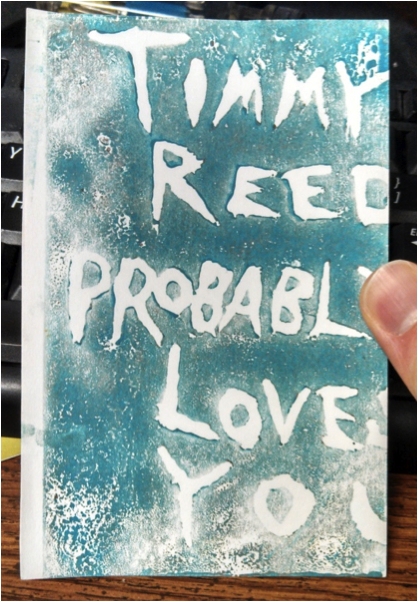 TIMMY
REED
PROBABLY
LOVES
YOU
Y
H
}
]